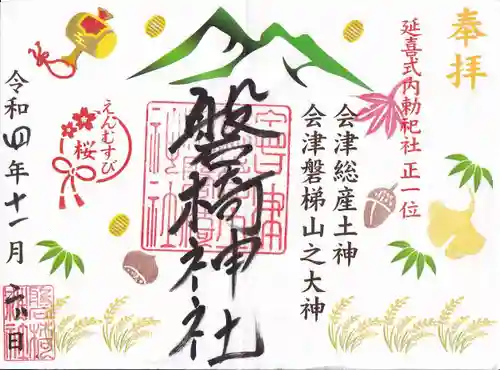 奉拝
延喜式内勅祀社 正一位
会津総産土神
会津磐梯山之大神
磐椅神社
えんむすび
桜
令和四年十一月六日